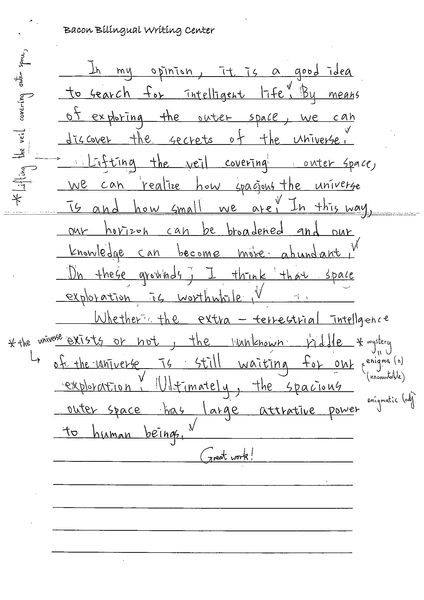 Bacon Bilingual Writing Center
In my opinion, it is a good idea
to search for intelligent life. By means
of exploring the outer space, we can
discover the secrets of the universe.
Lifting the veil covering outer space,
we can realize how spacious the universe
is and how small we are. In this way,
our horizon can be broadened and our
knowledge can become more abundant.
On these grounds, I think that space
exploration is worthwhile.
Whether the extra-terrestrial intellgence
exists or not, the unknown riddle
of the universe is still waiting for our
exploration. Ultimately, the spacious
outer space has large attrative power
to human beings.
Great work!
* Lifting the veil covering outer space,
* the universe
* mystery
enigma (n)
(uncountable)
enigmatic (adj)